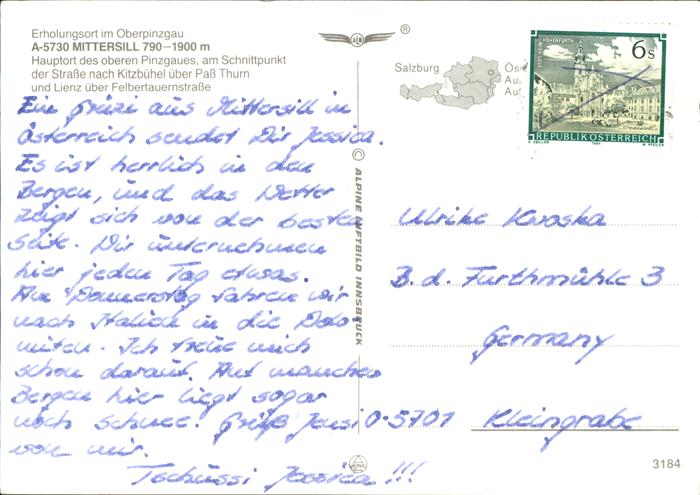 Erholungsort im Oberpinzgau
A-5730 MITTERSILL 790–1900 m
Hauptort des oberen Pinzgaues, am Schnittpunkt
der Straße nach Kitzbühel über Paß Thurn
und Lienz über Felbertauernstraße
®
Salzburg
6s
STIFT REIN-HOHENFURTH
REPUBLIK ÖSTERREICH
1984
Ein Gruß aus Mittersill in
Österreich sendet Dir Jessica.
Es ist herrlich in den
Bergen, und das Wetter
zeigt sich von der besten
Seite. Wir unternehmen
hier jeden Tag etwas.
Am Donnerstag fahren wir
nach Italien in die Dolo-
miten. Ich freue mich
schon darauf. Auf manchen
Bergen hier liegt sogar
noch Schnee. Grüß Jensi
von mir.
Tschüssi Jessica !!!
© ALPINE LUFTBILD INNSBRUCK
Ulrike Kwaska
B.d. Furthmühle 3
Germany
O-5701 Kleingrabe
3184